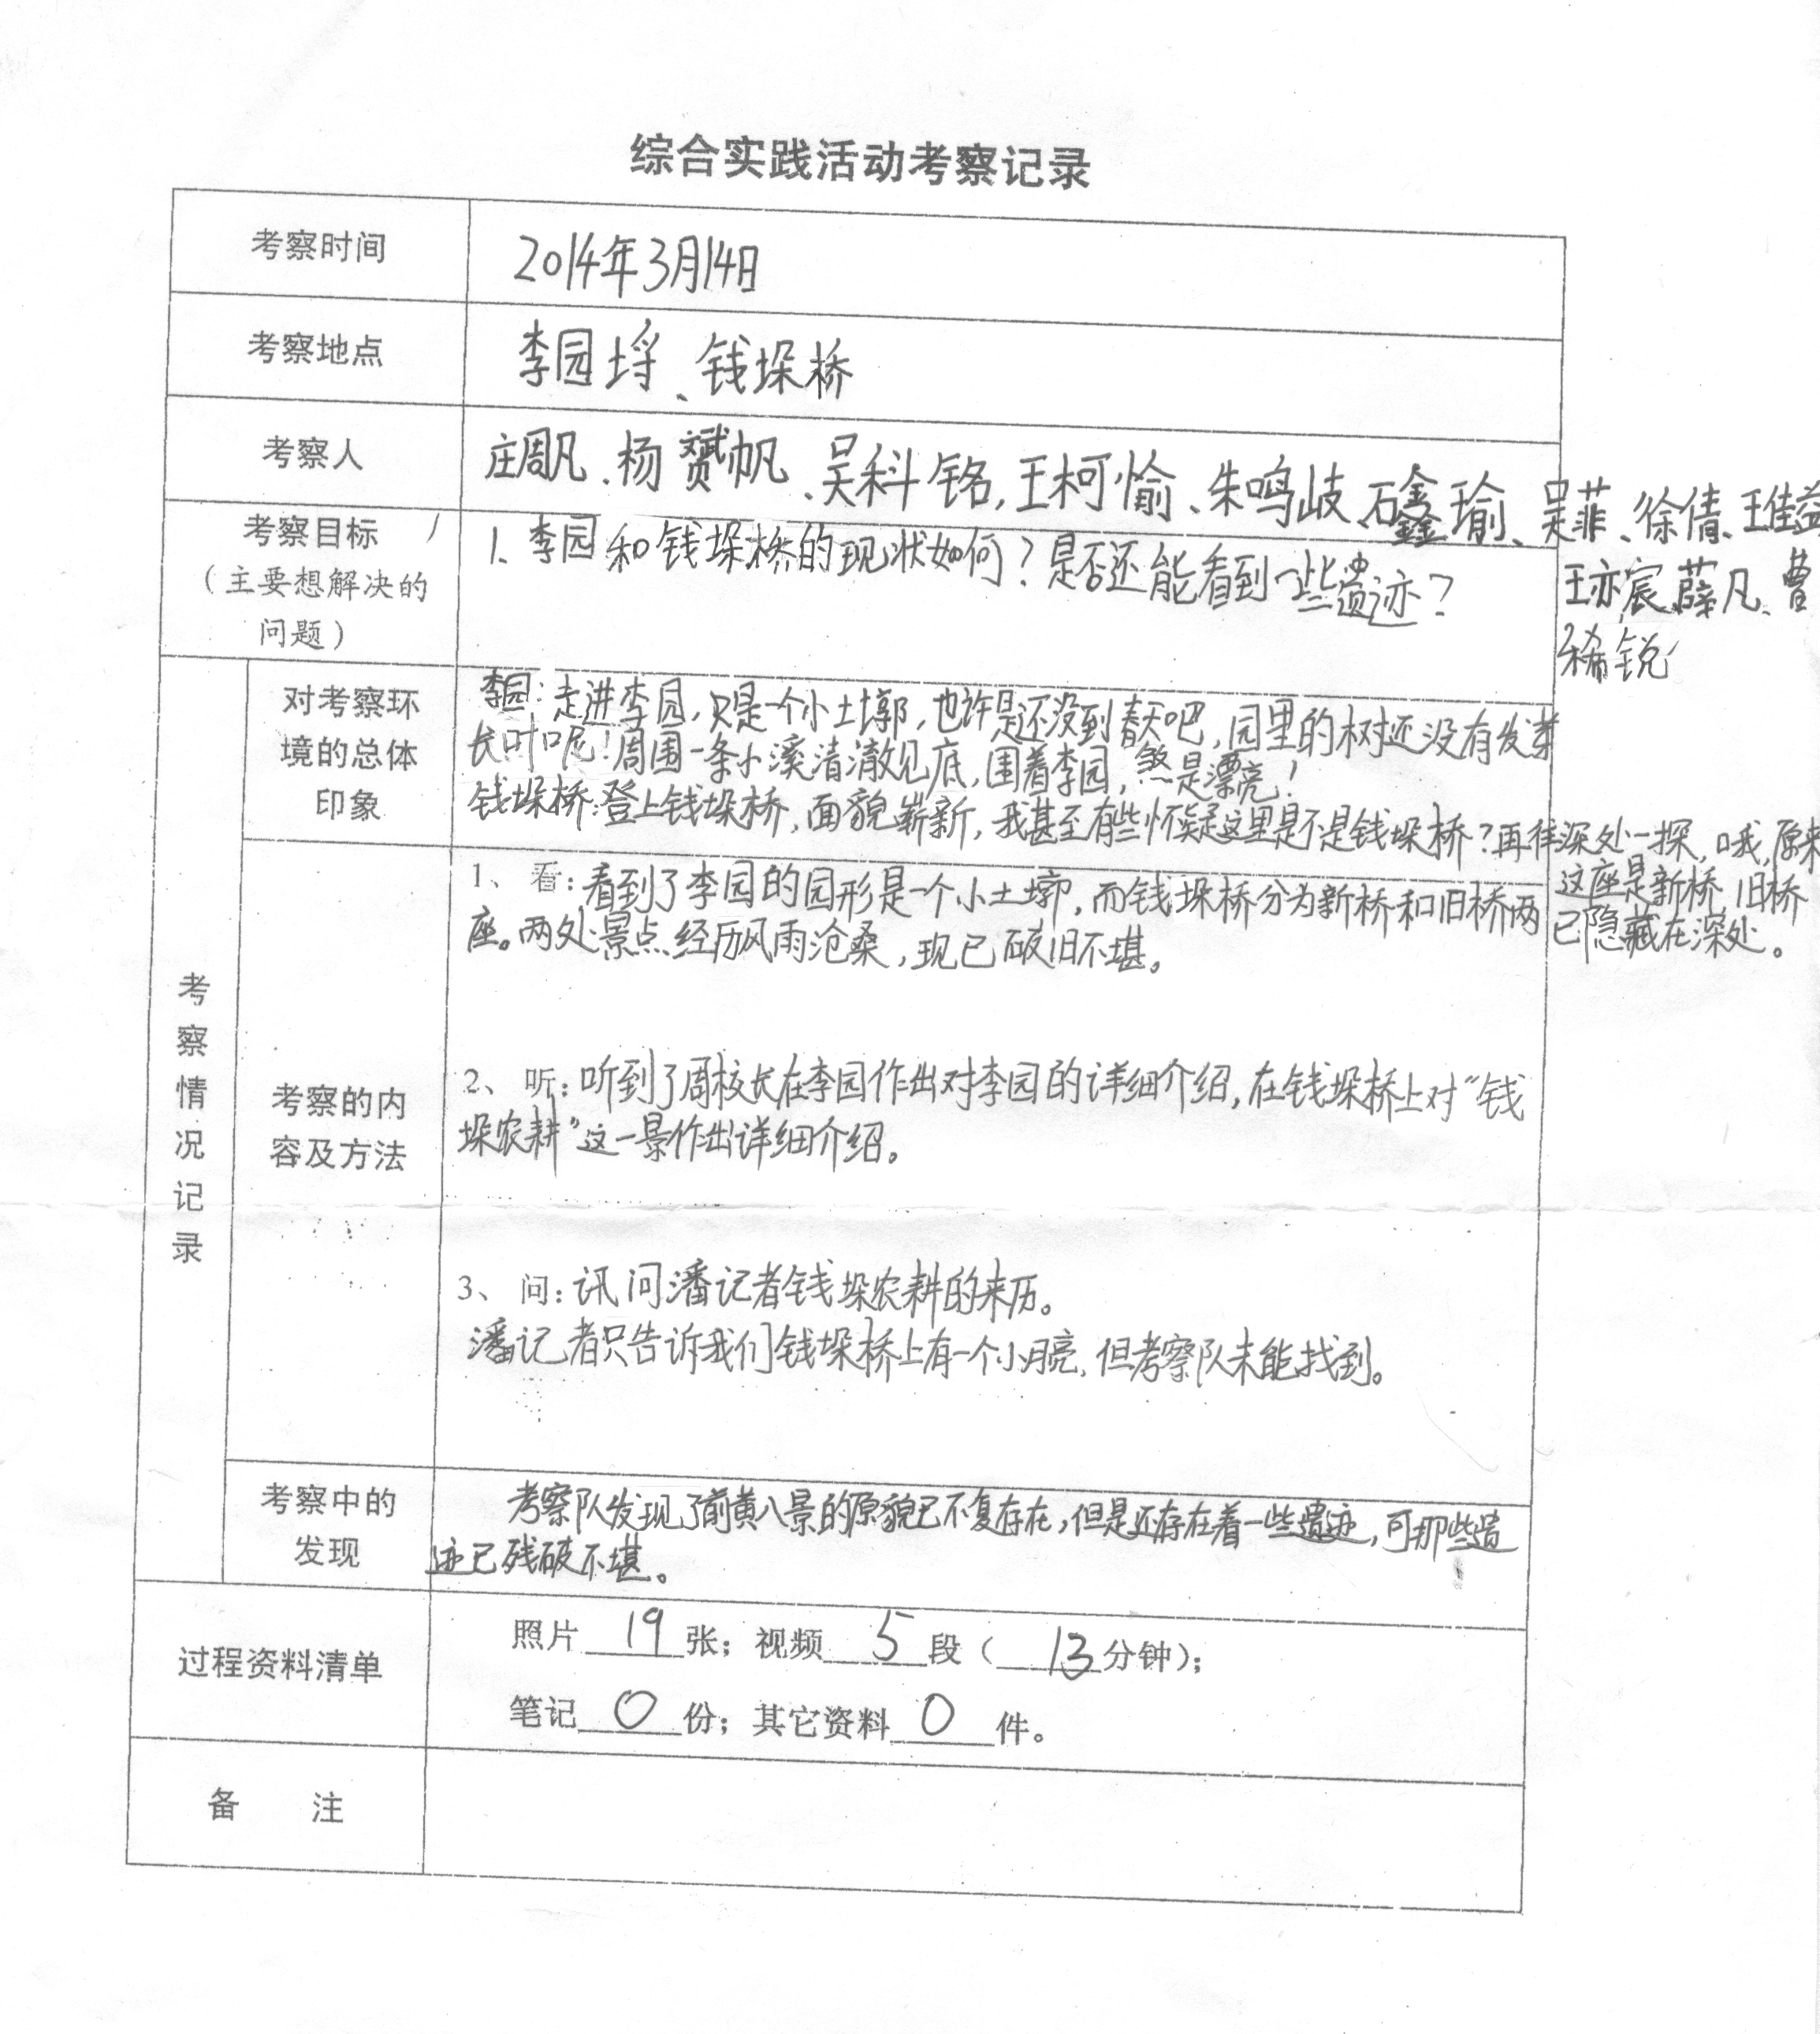 综合实践活动考察记录
考察时间
2014年3月14日
考察地点
李园埒、钱垛桥
考察人
庄周凡、杨赟帆、吴科铭,王柯愉、朱鸣岐、石鑫瑜、吴菲、徐倩、王佳益
王亦宸、薛凡、曹
稀锐
考察目标
(主要想解决的
问题)
1、李园和钱垛桥的现状如何?是否还能看到一些遗迹?
考察情况记录
对考察环
境的总体
印象
李园:走进李园,只是一个小土墩,也许是还没到春天吧,园里的树还没有发芽
长叶呢!周围一条小溪清澈见底,围着李园,煞是漂亮!
钱垛桥:登上钱垛桥,面貌崭新,我甚至有些怀疑这里是不是钱垛桥?再往深处一探,哦,原来
这座是新桥,旧桥
已隐藏在深处。
考察的内
容及方法
1、看:看到了李园的园形是一个小土墩,而钱垛桥分为新桥和旧桥两
座。两处景点经历风雨沧桑,现已破旧不堪。
2、听:听到了周校长在李园作出对李园的详细介绍,在钱垛桥上对“钱
垛农耕”这一景作出详细介绍。
3、问:讯问潘记者钱垛农耕的来历。
潘记者只告诉我们钱垛桥上有一个小月亮,但考察队未能找到。
考察中的
发现
考察队发现了前黄八景的原貌已不复存在,但是还存在着一些遗迹,可那些遗
迹已残破不堪。
过程资料清单
照片19张;视频5段(13分钟);
笔记0份;其它资料0件。
备 注